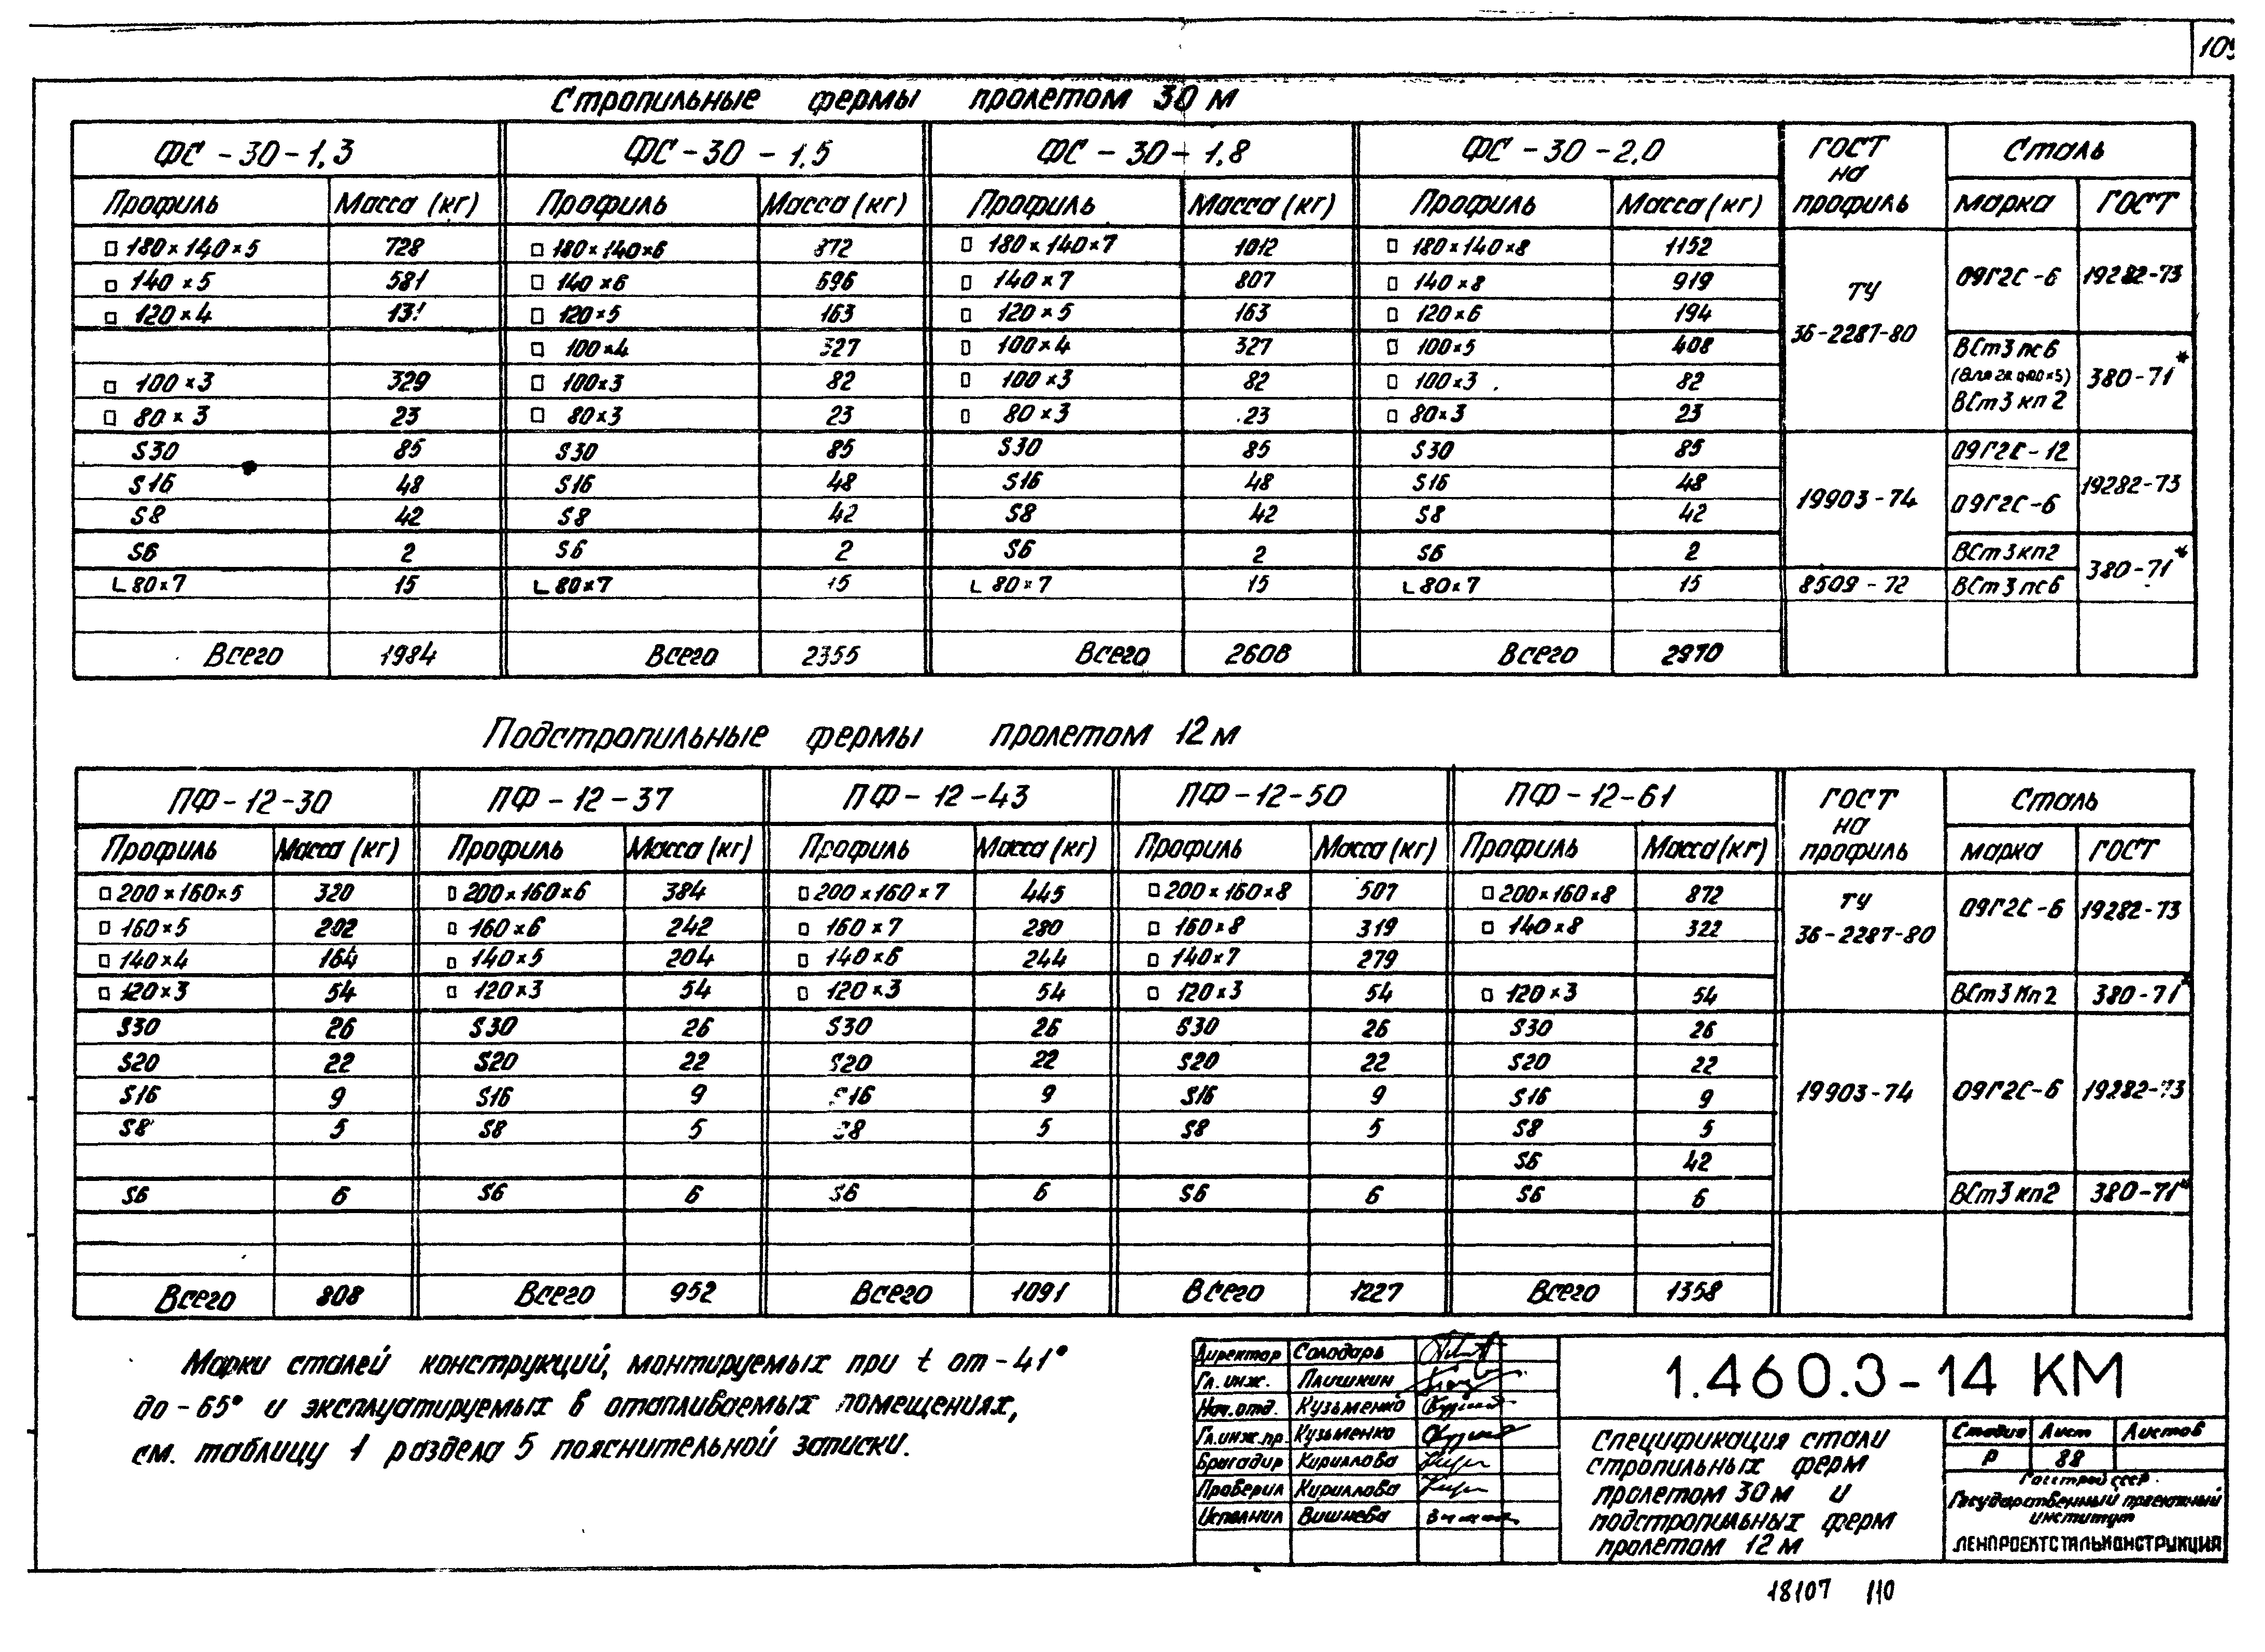 109
Стропильные фермы пролетом 30 м
ФС-30-1,3 ФС-30-1,5 ФС-30-1,8 ФС-30-2,0 ГОСТ на профиль Сталь
Профиль Масса (кг) Профиль Масса (кг) Профиль Масса (кг) Профиль Масса (кг) марка ГОСТ
□ 180×140×5 728 □ 180×140×6 872 □ 180×140×7 1012 □ 180×140×8 1152 ТУ 36-2287-80 09Г2С-6 19282-73
□ 140×5 581 □ 140×6 696 □ 140×7 807 □ 140×8 919
□ 120×4 131 □ 120×5 163 □ 120×5 163 □ 120×6 194
□ 100×4 327 □ 100×4 327 □ 100×5 408 ВСт3пс6 380-71*
□ 100×3 329 □ 100×3 82 □ 100×3 82 □ 100×3 82
□ 80×3 23 □ 80×3 23 □ 80×3 23 □ 80×3 23 ВСт3кп2
S30 85 S30 85 S30 85 S30 85 19903-74 09Г2С-12 19282-73
S16 48 S16 48 S16 48 S16 48 09Г2С-6
S8 42 S8 42 S8 42 S8 42
S6 2 S6 2 S6 2 S6 2 ВСт3кп2 380-71*
∟80×7 15 ∟80×7 15 ∟80×7 15 ∟80×7 15 8509-72 ВСт3пс6
Всего 1984 Всего 2355 Всего 2608 Всего 2970
Подстропильные фермы пролетом 12 м
ПФ-12-30 ПФ-12-37 ПФ-12-43 ПФ-12-50 ПФ-12-61 ГОСТ на профиль Сталь
Профиль Масса (кг) Профиль Масса (кг) Профиль Масса (кг) Профиль Масса (кг) Профиль Масса (кг) марка ГОСТ
□ 200×160×5 320 □ 200×160×6 384 □ 200×160×7 445 □ 200×160×8 507 □ 200×160×8 872 ТУ 36-2287-80 09Г2С-6 19282-73
□ 160×5 202 □ 160×6 242 □ 160×7 280 □ 160×8 319 □ 140×8 322
□ 140×4 164 □ 140×5 204 □ 140×6 244 □ 140×7 279
□ 120×3 54 □ 120×3 54 □ 120×3 54 □ 120×3 54 □ 120×3 54 ВСт3кп2 380-71*
S30 26 S30 26 S30 26 S30 26 S30 26 19903-74 09Г2С-6 19282-73
S20 22 S20 22 S20 22 S20 22 S20 22
S16 9 S16 9 S16 9 S16 9 S16 9
S8 5 S8 5 S8 5 S8 5 S8 5
S6 42
S6 6 S6 6 S6 6 S6 6 S6 6 ВСт3кп2 380-71*
Всего 808 Всего 952 Всего 1091 Всего 1227 Всего 1358
Марки сталей конструкций, монтируемых при t от -41°
до -65° и эксплуатируемых в отапливаемых помещениях,
см. таблицу 1 раздела 5 пояснительной записки.
Директор Солодарь
Гл. инж. Плишкин
Нач. отд. Кузьменко
Гл. инж. пр. Кузьменко
Бригадир Кириллова
Проверил Кириллова
Исполнил Вишнева
1.460.3-14 КМ
Спецификация стали
стропильных ферм
пролетом 30 м и
подстропильных ферм
пролетом 12 м
Стадия Лист Листов
Р 88
Госстрой СССР
Государственный проектный
институт
ЛЕНПРОЕКТСТАЛЬКОНСТРУКЦИЯ
18107 110